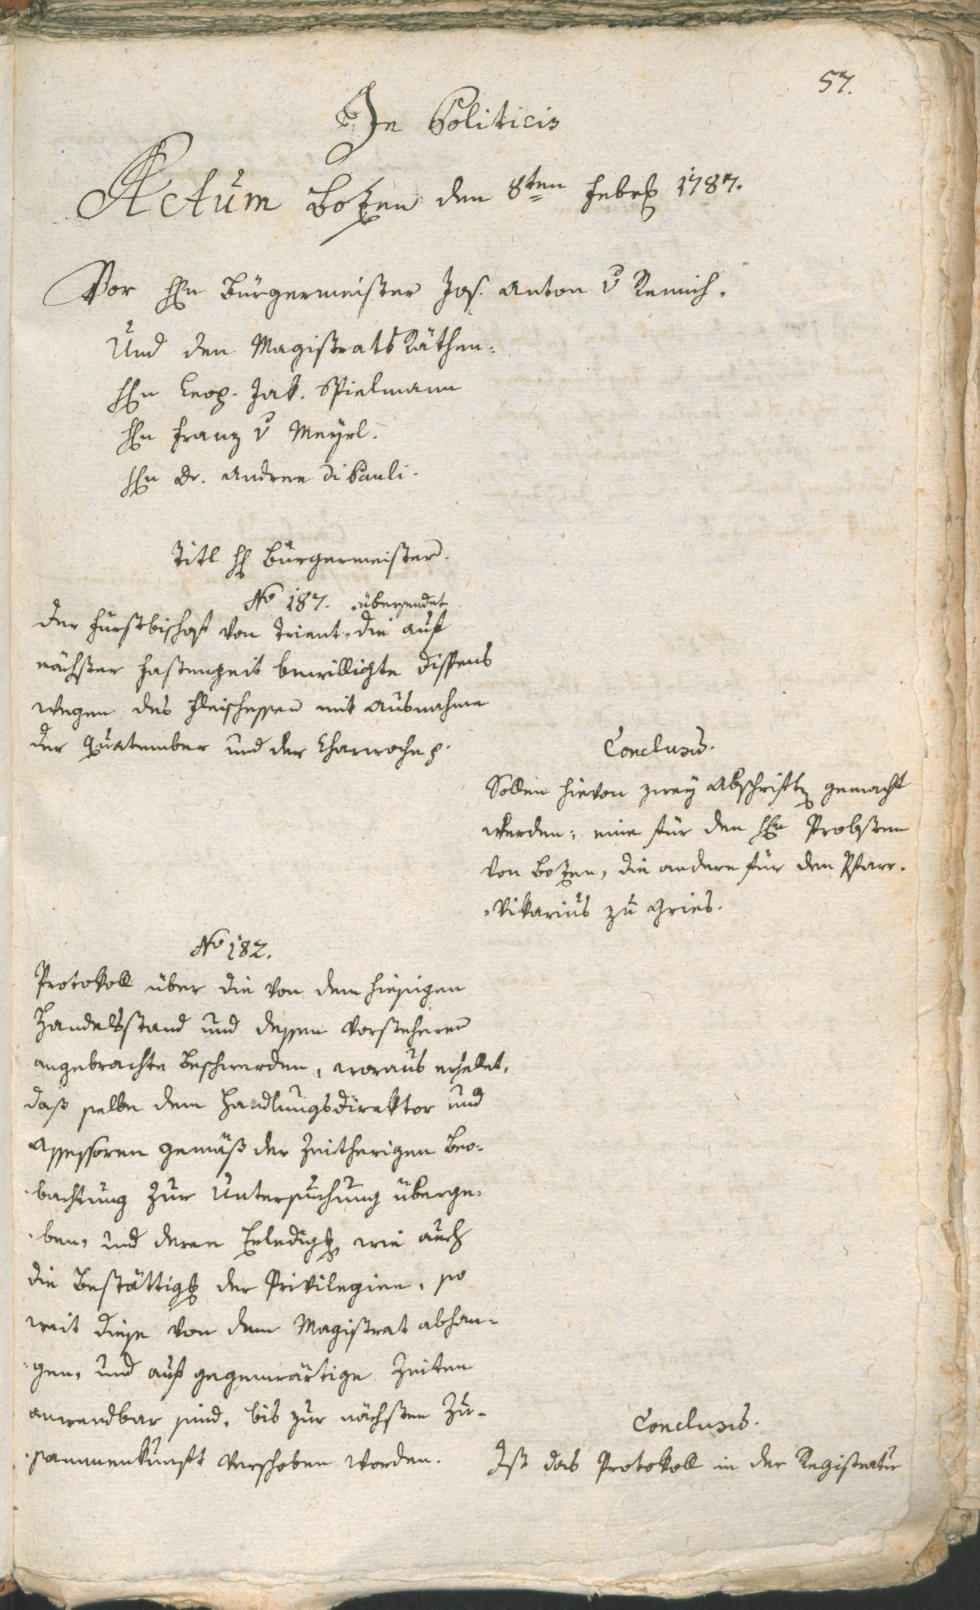 57.
In Politicis
Actum Bozen den 8ten Febr 1787.
Vor HEn Bürgermeister Jos. Anton v Remich.
Und den Magistrats Räthen.
HEn Leop. Jak. Spielmann
HEn Franz v Meyrl.
HEn Dr. Andree Di Pauli.
Titl H Bürgermeister.
No 187. übersendet
Der Fürstbischof von Trient die auf
nächster Fastenzeit bewilligte Dispens
wegen des Fleischessen mit Ausnahme
der Quatember und der Charwoche p.
Conclusis.
Sollen hievon zwey Abschriften gemacht
werden: eine für den HEn Probsten
von Bozen, die andere für den Pfarr-
-Vikarius zu Gries.
No 182.
Protokoll über die von dem hiesigen
Handelsstand und dessen Vorstehern
angebrachte Beschwerden, woraus erhellet,
daß selbe dem Handlungsdirektor und
Assessoren gemäß der zeitherigen Beo-
-bachtung zur Untersuchung überge-
-ben, und deren Erledigg wie auch
die Bestättigg der Privilegien, so
weit diese von dem Magistrat abhan-
-gen, und auf gegenwärtige Zeiten
anwendbar sind, bis zur nächsten Zu-
-sammenkunft verschoben worden.
Conclusis.
Ist das Protokoll in der Registratur